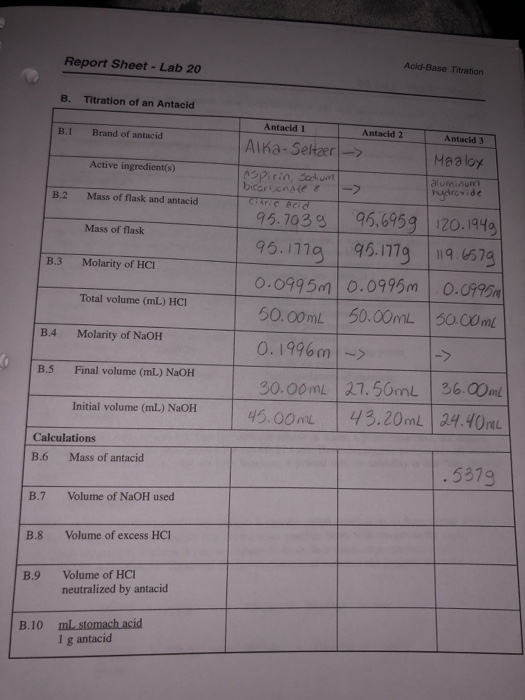 Report Sheet - Lab 20
Acid-Base Titration
B. Titration of an Antacid
Antacid 1 Antacid 2 Antacid 3
B.1 Brand of antacid Alka-Seltzer -> Maalox
Active ingredient(s) Aspirin, Sodium bicarbonate & citric acid -> aluminum hydroxide
B.2 Mass of flask and antacid 95.703g 95.695g 120.194g
Mass of flask 95.177g 95.177g 119.657g
B.3 Molarity of HCl 0.0995m 0.0995m 0.0995m
Total volume (mL) HCl 50.00mL 50.00mL 50.00mL
B.4 Molarity of NaOH 0.1996m -> ->
B.5 Final volume (mL) NaOH 30.00mL 27.50mL 36.00mL
Initial volume (mL) NaOH 45.00mL 43.20mL 24.40mL
Calculations
B.6 Mass of antacid .537g
B.7 Volume of NaOH used
B.8 Volume of excess HCl
B.9 Volume of HCl
neutralized by antacid
B.10 mL stomach acid
1 g antacid